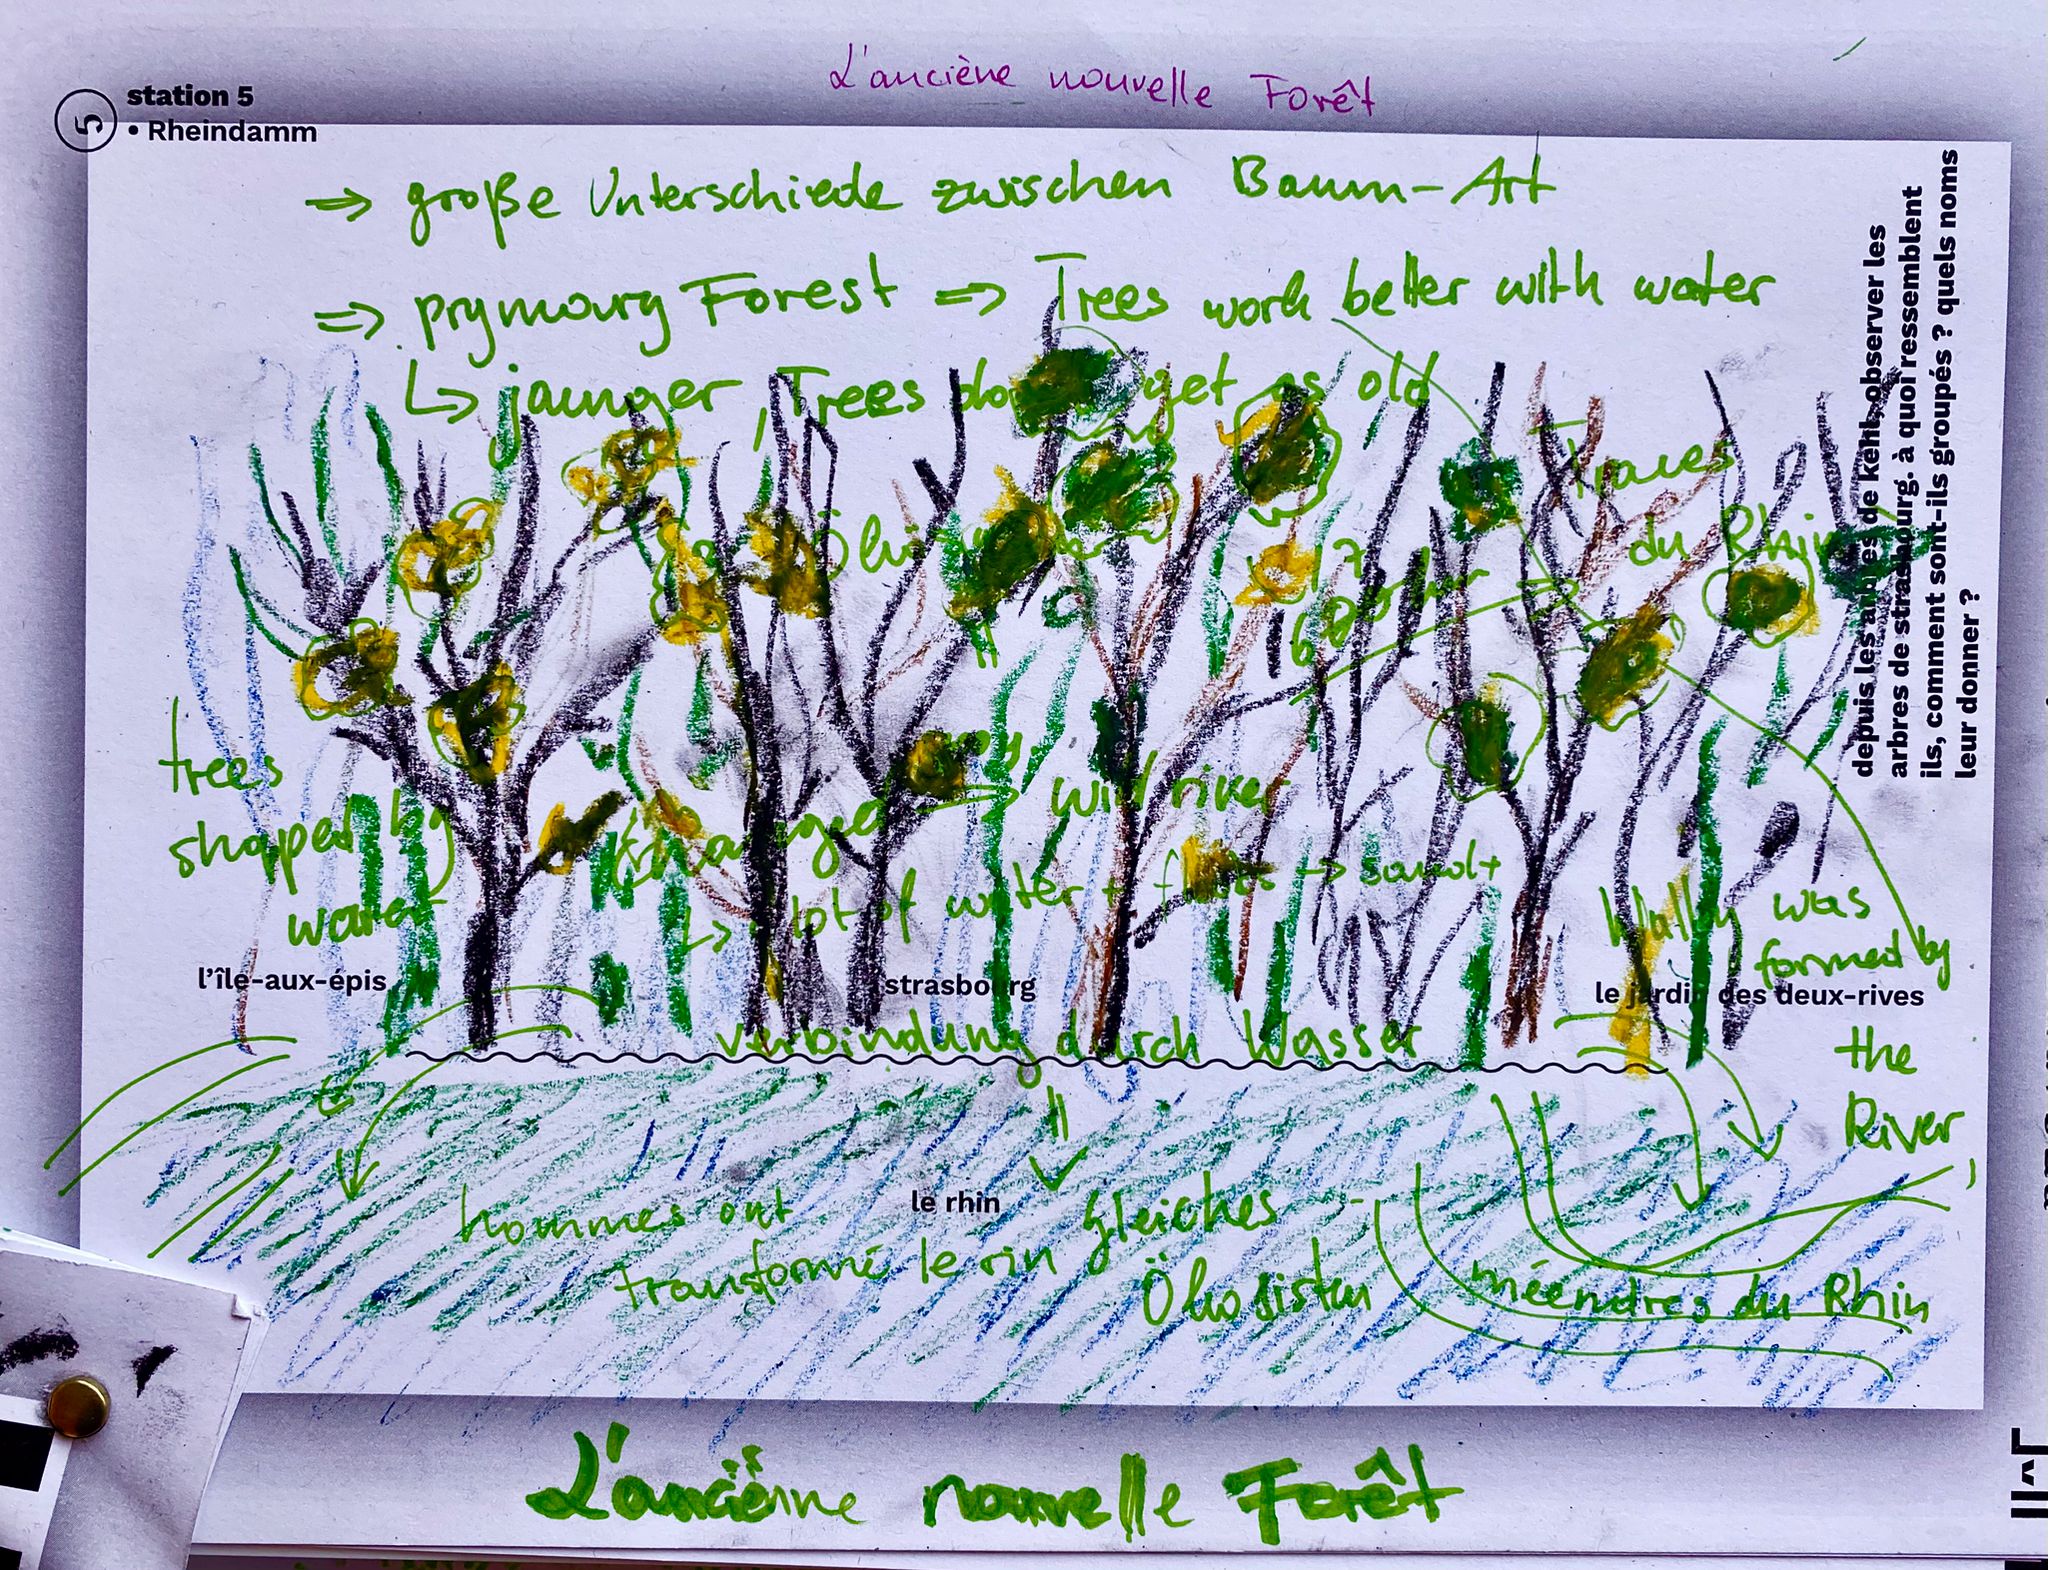 L'anciène nouvelle Forêt
5
station 5
• Rheindamm
⇒ große Unterschiede zwischen Baum-Art
⇒ prymoury Forest ⇒ Trees work better with water
↳ jaunger, Trees get as old
Traces
du Rhin
trees
shaped by
water
wild river
↳ lot of water + → sand +
Walley was
formed by
the
River
l'île-aux-épis
strasbourg
le jardin des deux-rives
verbindung durch Wasser
le rhin
hommes ont
transformé le rin
gleiches
Ökosistem
méendres du Rhin
L'anciènne nouvelle Forêt
depuis les arbres de kehl, observer les
arbres de strasbourg. à quoi ressemblent
ils, comment sont-ils groupés ? quels noms
leur donner ?